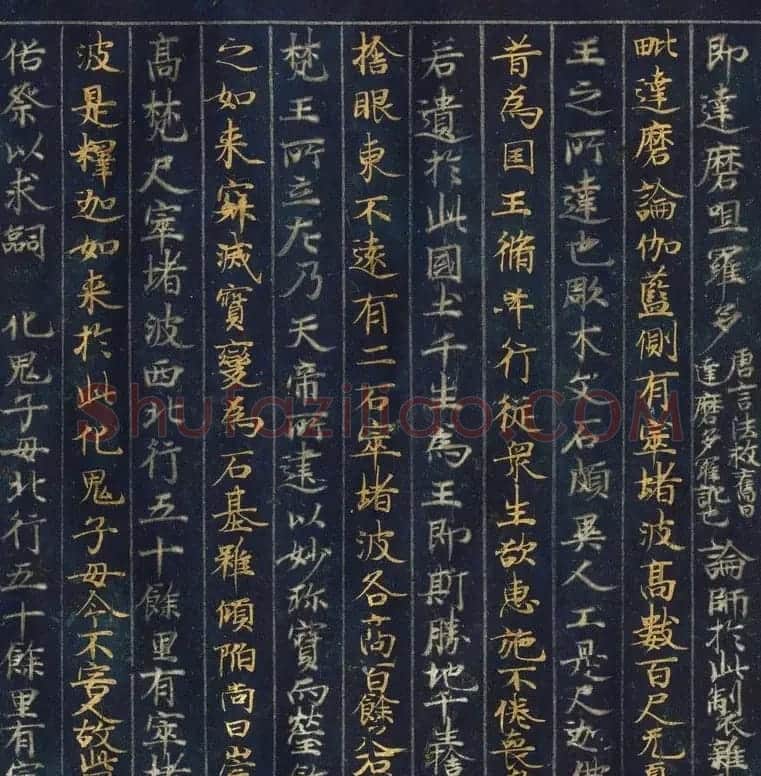 即達磨呾羅多唐言法救舊曰達磨多羅訛也論師於此製雜
毗達磨論伽藍側有窣堵波高數百尺无
王之所達也彫木文石頗異人工是尺迦
昔為国王脩𦬇行從衆生欲惠施不倦喪
若遺於此國土千生為王即斯勝地千生捨
捨眼東不遠有二石窣堵波各高百餘尺右
梵王所立左乃天帝所建以妙珎寶而瑩
之如来寂滅寶變為石基雖傾陷尚曰崇
高梵尺窣堵波西北行五十餘里有窣堵
波是釋迦如来於此化鬼子母令不害人故此
俗祭以求嗣 化鬼子母北行五十餘里有窣
Shufaziliao.COM